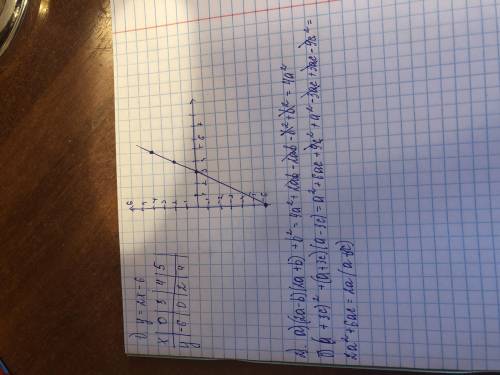 1) y = 2x - 6
x | 0 | 3 | 4 | 5
y | -6 | 0 | 2 | 4
2) a) (2a-b)(2a+b) + b² = 4a² + 2ab - 2ab - b² + b² = 4a²
б) (a+3c)² + (a+3c)(a-3c) = a² + 6ac + 9c² + a² - 3ac + 3ac - 9c² =
2a² + 6ac = 2a(a+3c)